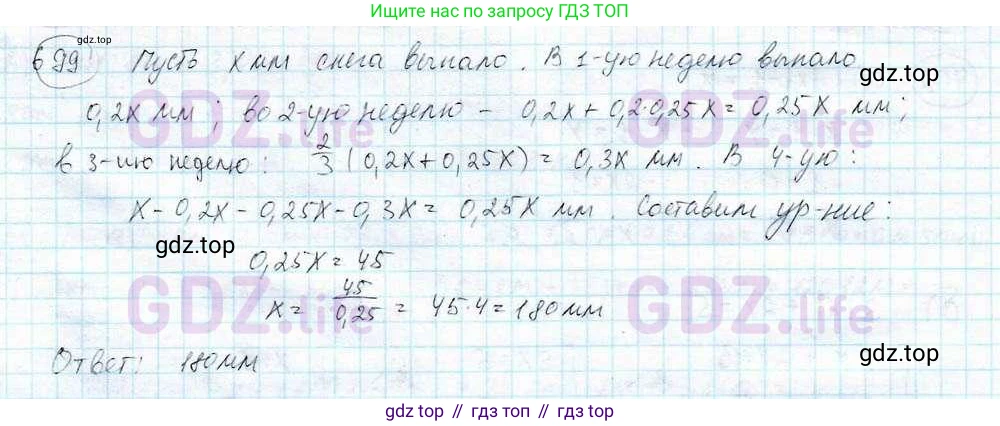 Ищите нас по запросу ГДЗ ТОП
gdz.top
699 Пусть x мм снега выпало. В 1-ую неделю выпало
gdz.top
0,2x мм; во 2-ую неделю - 0,2x + 0,2·0,25x = 0,25x мм;
GDZ.life GDZ.life
в 3-ию неделю: 2/3 (0,2x + 0,25x) = 0,3x мм. В 4-ую:
x - 0,2x - 0,25x - 0,3x = 0,25x мм. Составим ур-ние:
gdz.top
0,25x = 45
GDZ.life GDZ.life
x = 45/0,25 = 45·4 = 180 мм
Ответ: 180 мм
gdz.top
gdz.top // гдз топ // gdz.top